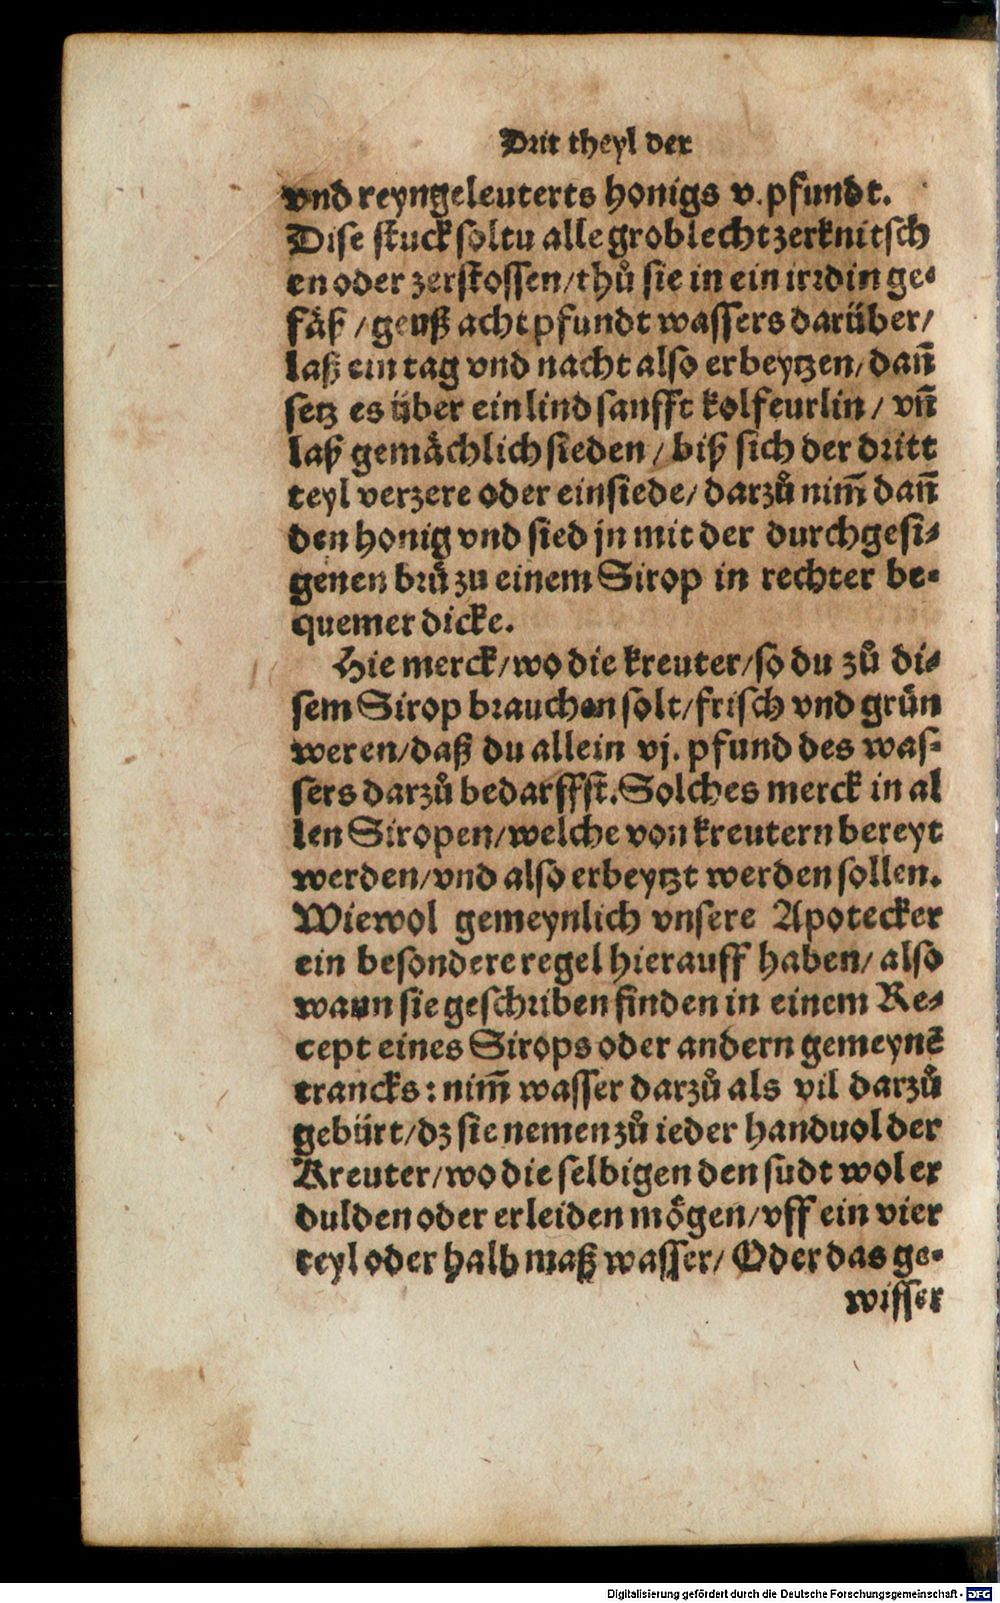 Drit theyl der
vnd reyngeleuterts honigs v. pfundt.
Dise stuck soltu alle groblecht zerknitsch
en oder zerstossen/ thuͦ sie in ein irrdin ge⸗
faͤß / geuß acht pfundt wassers daruͤber/
laß ein tag vnd nacht also erbeytzen/ dañ
setz es uͤber ein lind sanfft kolfeurlin / vñ
laß gemaͤchlich sieden / biß sich der dritt
teyl verzere oder einsiede/ darzuͦ nim̃ dañ
den honig vnd sied jn mit der durchgesi⸗
genen bruͤ zu einem Sirop in rechter be⸗
quemer dicke.
Hie merck/ wo die kreuter/ so du zuͦ di⸗
sem Sirop brauchen solt/ frisch vnd gruͤn
weren/ daß du allein vj. pfund des was⸗
sers darzuͦ bedarffst. Solches merck in al
len Siropen/ welche von kreutern bereyt
werden/ vnd also erbeytzt werden sollen.
Wiewol gemeynlich vnsere Apotecker
ein besondere regel hierauff haben/ also
wann sie geschriben finden in einem Re⸗
cept eines Sirops oder andern gemeynẽ
trancks: nim̃ wasser darzuͦ als vil darzuͦ
gebuͤrt/ dz sie nemen zuͦ ieder handuol der
Kreuter/ wo die selbigen den sudt wol er
dulden oder erleiden moͤgen/ vff ein vier
teyl oder halb maß wasser/ Oder das ge⸗
wisser
Digitalisierung gefördert durch die Deutsche Forschungsgemeinschaft - DFG